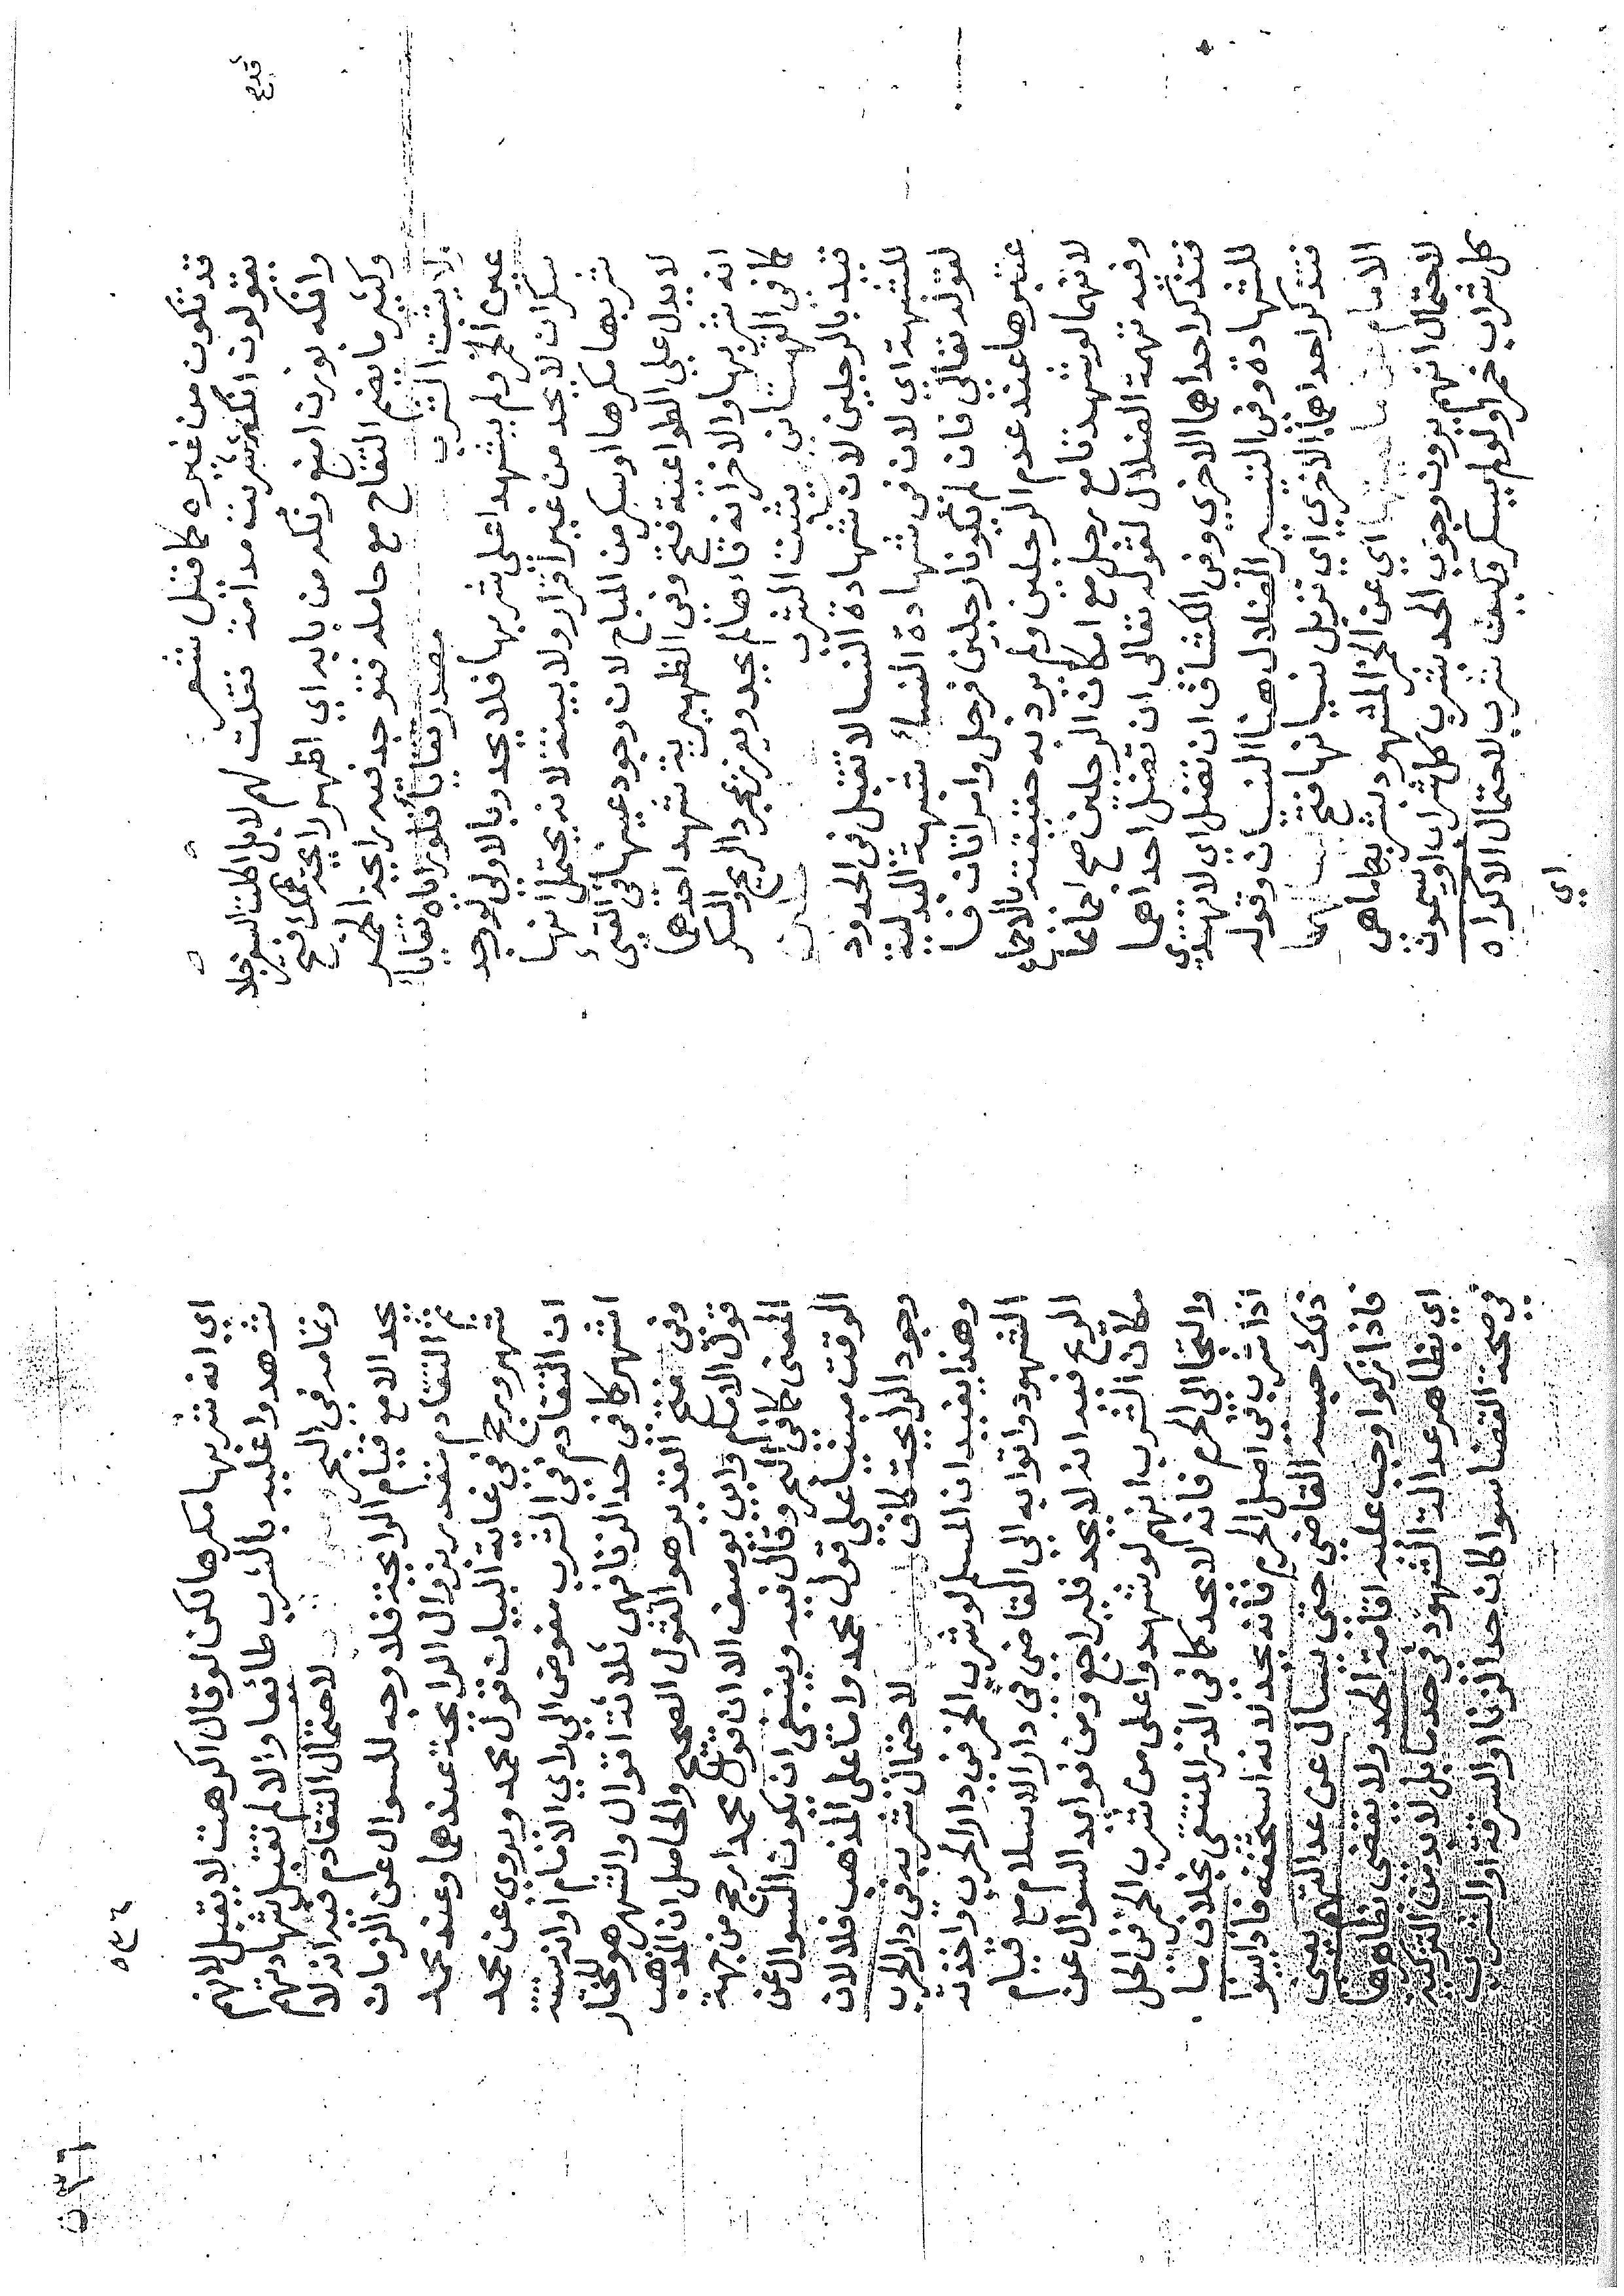 قد تكون من غيره كما قيل شعر
يقولون انكه شربت مدامة فقلت لهم لا بل اكلت السفرجلا
وانكه بوزن امنع ونكه من بابه اي اظهر رائحة فمك فتح
وكثيرا ما يضم التفاح مع حامله فتوجد فيه رايحة الخمر
ولا يثبت الشرب مصدر تقايا فلو راه تقايا
عين الخمر ولم يشهدا على شربها فلا يحد وبالاولى لو وجد
سكران لا يحد من غير اقرار ولا بينة لانه يحتمل انها
شربها مكرها او سكر من المباح لان وجود عينها في القي
لا يدل على الطواعية فتح وفي الظهيرية شهد احدهما
انه شربها والاخر انه قاءها لم يحد ويعزر بمجرد الريح والسكر
كما في القهستاني يثبت الشرب
قيد بالرجلين لان شهادة النسا لا تقبل في الحدود
للشبهة اي لان في شهادة النساء شبهة البدلية
لقوله تعالى فان لم يكونا رجلين فرجل وامراتان فا
عتبرها عند عدم الرجلين ولم يرد به حقيقته بالاجماع
لانهما لو شهدتا مع رجل مع امكان الرجلين صح اجماعا
وفيه تهمة الضلال لقوله تعالى ان تضل احداهما
فتذكر احداهما الاخرى وفي الكشاف ان تضل اي لا تهتدي
للشهادة وفي التيسير الضلال هنا النسيان وقوله
فتذكر احداهما الاخرى اي تزيل نسيانها فتح
الامام عن ماهيتها اي عن الخمر المشهود بشربها ما هي
لاحتمال انهم يرون وجوب الحد بشرب كل شراب او يسمون
كل شراب خمرا ولو لم يسكر وكيف شرب لاحتمال الاكراه
اي
قدح
٥٤٦
اي انه شربها مكرها لكن لو قال اكرهت لا يقبل لانهم
شهدوا عليه بالشرب طائعا والا لم تقبل شهادتهم
وتمامه في البحر لاحتمال التقادم فيه انه لا
يحد الا مع قيام الرايحة فلا وجه للسوال عن الزمان
ثم التقادم مقدر بزوال الرايحة عندهما وعند محمد
شهر ورجح في غاية البيان قول محمد وروي عن محمد
ان التقادم في الشرب مفوض الى راي الامام او انه ستة
اشهر كما في حد الزنا فهي ثلاثة اقوال والشهر هو المختار
وفي فتح القدير هو القول الصحيح والحاصل ان المذهب
قول الامام وابي يوسف الا ان قول محمد ارجح من جهة
المعنى كما في البحر وقال فيه وينبغي ان يكون السوال عن
الوقت مبنيا على قول محمد واما على المذهب فلا لان
وجود الرايحة كاف لاحتمال شربه في دار الحرب
وهذا يفيد ان المسلم لو شرب الخمر في دار الحرب واخذته
الشهود واتوا به الى القاضي في دار الاسلام مع قيام
الريح فيه انه لا يحد فليراجع ومن فوايد السوال عن
مكان الشرب انهم لو شهدوا على من شرب الخمر في الحل
والتجا الى الحرم فانه لا يحد كما في الدر المنتقى بخلاف ما
اذا شرب في اصل الحرم فانه يحد لانه استخفه فاذا بينوا
ذلك حبسه القاضي حتى يسال عن عدالتهم يعني
فاذا زكوا وجب عليه اقامة الحد ولا يقضى بظاهرها
اي بظاهر عدالة الشهود في حد ما بل لا بد من التزكية
في صحة القضا سوا كان حد الزنا او السرقة او الشرب